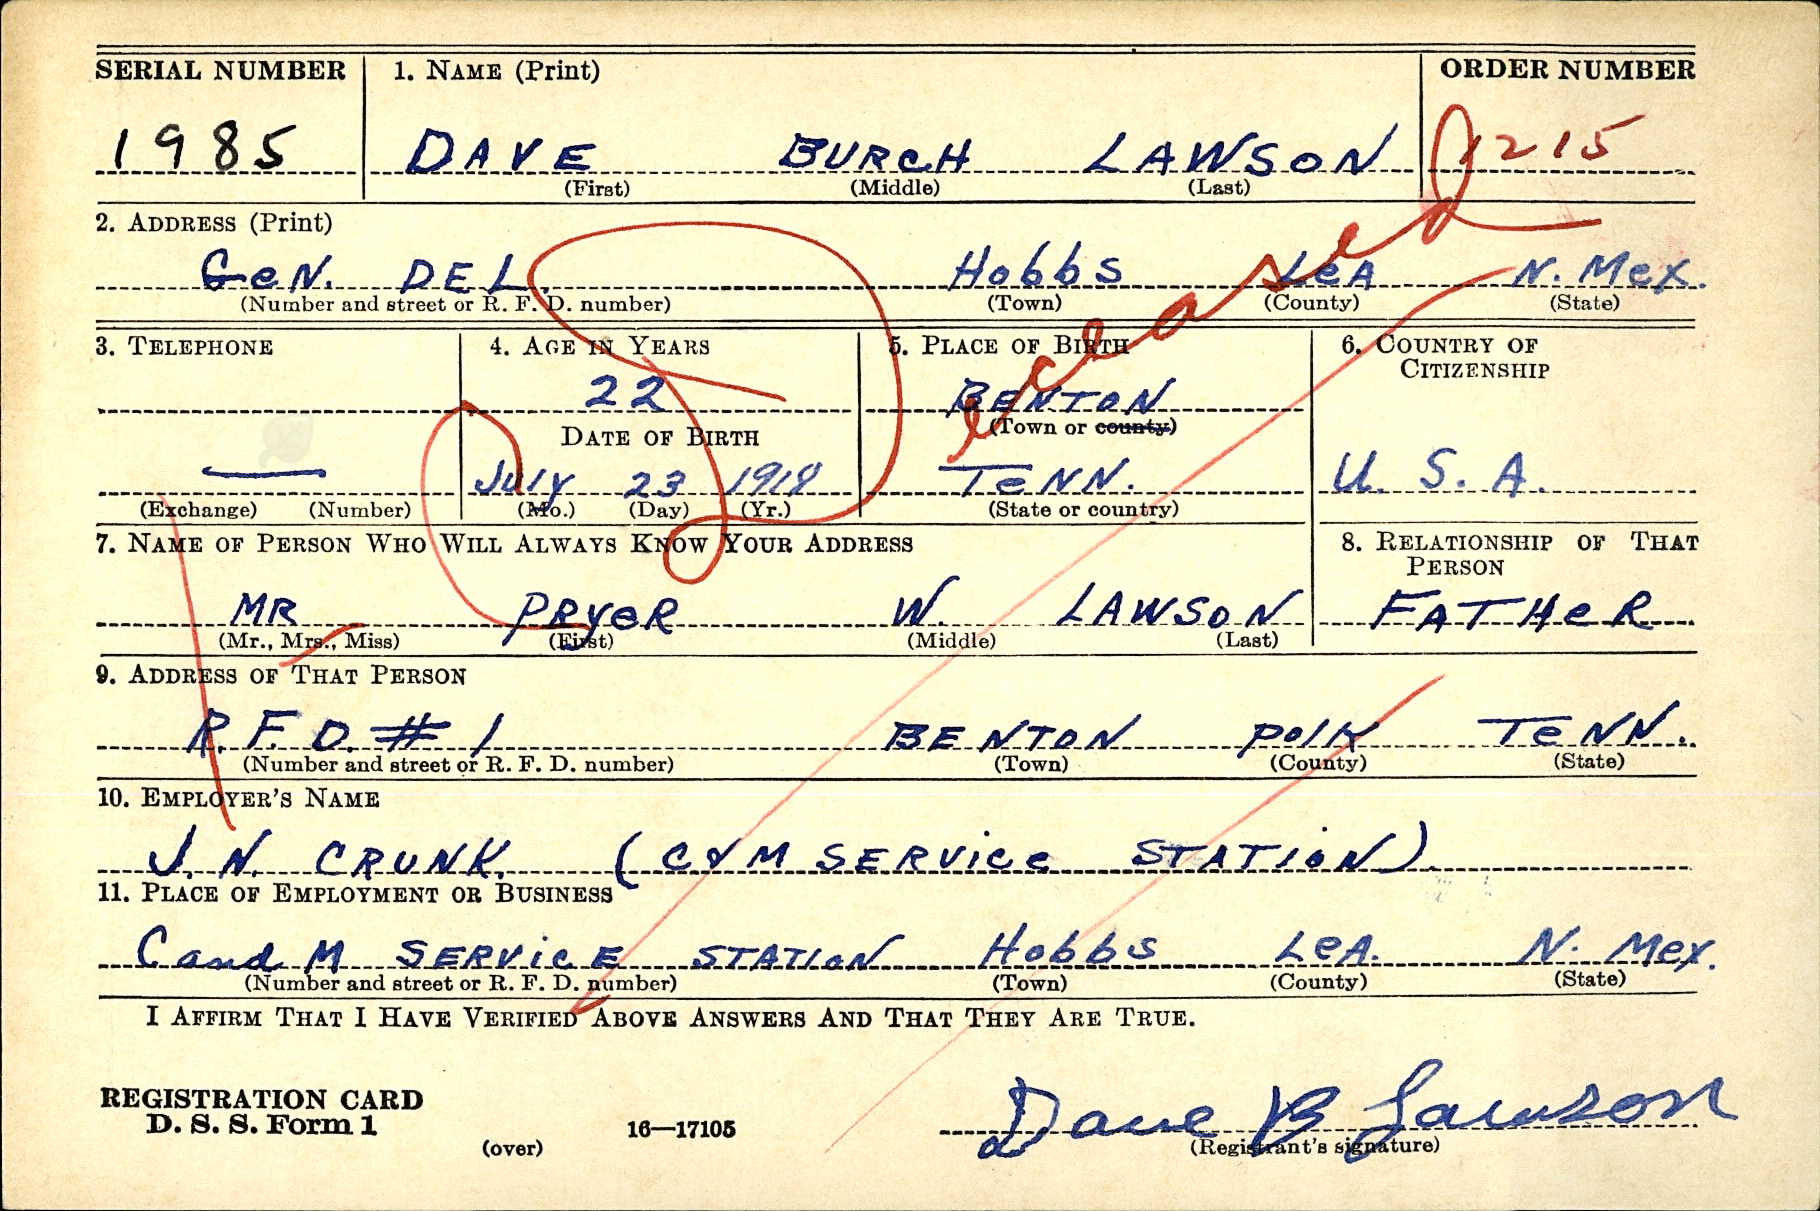 SERIAL NUMBER 1. NAME (Print) ORDER NUMBER
1985 DAVE BURCH LAWSON 1215
(First) (Middle) (Last)
Deceased
2. ADDRESS (Print)
GeN. DEL. Hobbs LeA N. Mex.
(Number and street or R. F. D. number) (Town) (County) (State)
3. TELEPHONE 4. AGE IN YEARS 5. PLACE OF BIRTH 6. COUNTRY OF CITIZENSHIP
22 BENTON
DATE OF BIRTH (Town or county)
July 23 1918 TeNN. U. S. A.
(Exchange) (Number) (Mo.) (Day) (Yr.) (State or country)
7. NAME OF PERSON WHO WILL ALWAYS KNOW YOUR ADDRESS 8. RELATIONSHIP OF THAT PERSON
MR PRyeR W. LAWSON FATHeR
(Mr., Mrs., Miss) (First) (Middle) (Last)
9. ADDRESS OF THAT PERSON
R.F.D. # 1 BENTON Polk TeNN.
(Number and street or R. F. D. number) (Town) (County) (State)
10. EMPLOYER'S NAME
J. N. CRUNK. (C & M SERVice STATioN).
11. PLACE OF EMPLOYMENT OR BUSINESS
C and M SERVicE STATION Hobbs LeA. N. Mex.
(Number and street or R. F. D. number) (Town) (County) (State)
I AFFIRM THAT I HAVE VERIFIED ABOVE ANSWERS AND THAT THEY ARE TRUE.
REGISTRATION CARD
D. S. S. Form 1
(over) 16—17105
Dave B Lawson
(Registrant's signature)